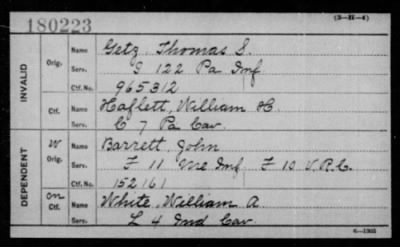 180223
(3—H—4)
INVALID
Orig. Name Getz, Thomas S.
Serv. G 122 Pa Inf
Ctf. No. 965312
Ctf. Name Haflett, William H.
Serv. C 7 Pa Cav.
DEPENDENT
W Orig. Name Barrett, John
Serv. F 11 Me Inf F 10 V.R.C.
Ctf. No. 152161
On Ctf. Name White, William A
Serv. L 4 Ind Cav.
6—1903